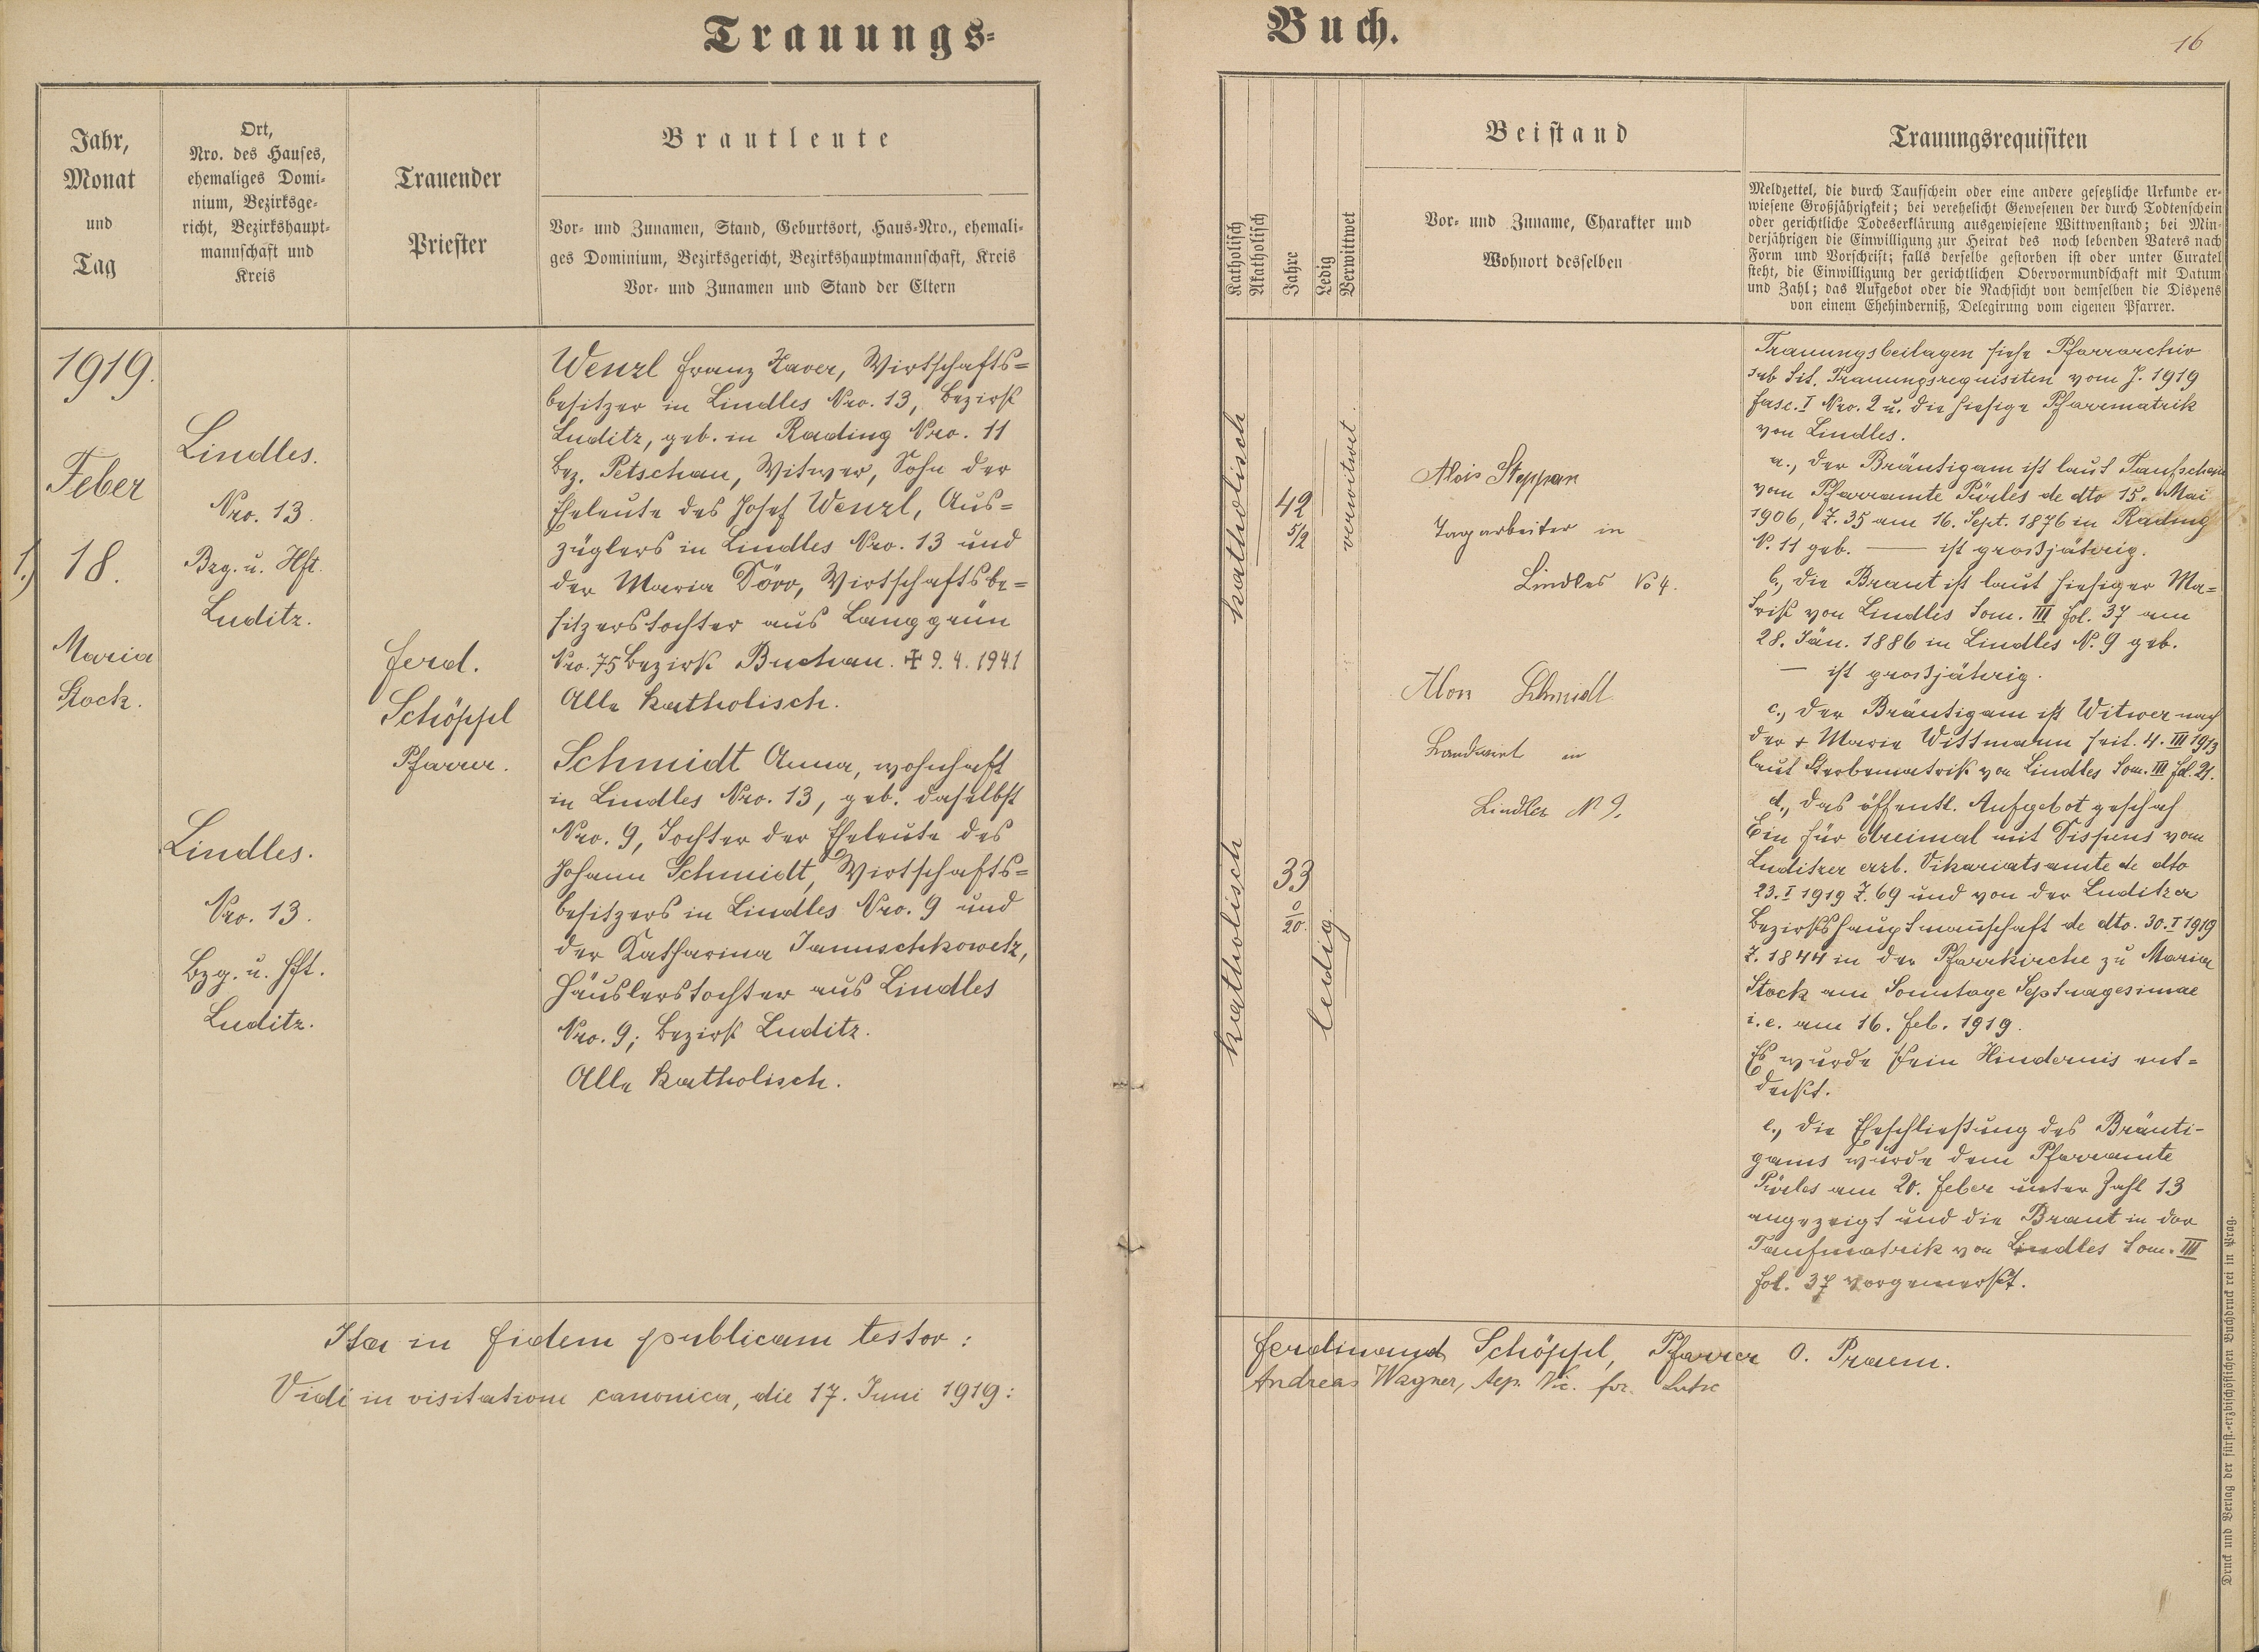 Trauungs-
Buch.
16
Jahr,
Monat
und
Tag
Ort,
Nro. des Hauses,
ehemaliges Domi-
nium, Bezirksge-
richt, Bezirkshaupt-
mannschaft und
Kreis
Trauender
Priester
Brautleute
Vor- und Zunamen, Stand, Geburtsort, Haus-Nro., ehemali-
ges Dominium, Bezirksgericht, Bezirkshauptmannschaft, Kreis
Vor- und Zunamen und Stand der Eltern
Katholisch
Akatholisch
Jahre
Ledig
Verwittwet
Beistand
Vor- und Zuname, Charakter und
Wohnort desselben
Trauungsrequisiten
Meldzettel, die durch Taufschein oder eine andere gesetzliche Urkunde er-
wiesene Großjährigkeit; bei verehelicht Gewesenen der durch Todtenschein
oder gerichtliche Todeserklärung ausgewiesene Wittwenstand; bei Min-
derjährigen die Einwilligung zur Heirat des noch lebenden Vaters nach
Form und Vorschrift; falls derselbe gestorben ist oder unter Curatel
steht, die Einwilligung der gerichtlichen Obervormundschaft mit Datum
und Zahl; das Aufgebot oder die Nachsicht von demselben die Dispens
von einem Ehehinderniß, Delegirung vom eigenen Pfarrer.
1919.
Feber
1.) 18.
Maria
Stock.
Lindles.
Nro. 13.
Bzg. u. Hft.
Luditz.
Lindles.
Nro. 13.
Bzg. u. Hft.
Luditz.
Ferd.
Schöppl
Pfarrer.
Wenzl Franz Xaver, Wirtschafts=
besitzer in Lindles Nro. 13, Bezirk
Luditz, geb. in Rading Nro. 11
Bez. Petschau, Witwer, Sohn der
Eheleute des Josef Wenzl, Aus=
züglers in Lindles Nro. 13 und
der Maria Dörr, Wirtschaftsbe=
sitzerstochter aus Langgrün
Nro. 75 Bezirk Buchau. ✠ 9. 4. 1941
Alle katholisch.
Schmidt Anna, wohnhaft
in Lindles Nro. 13, geb. daselbst
Nro. 9, Tochter der Eheleute des
Johann Schmidt, Wirtschafts=
besitzers in Lindles Nro. 9 und
der Katharina Januschkowetz,
Häuslerstochter aus Lindles
Nro. 9; Bezirk Luditz.
Alle katholisch.
katholisch
42
5/2
verwitwet.
katholisch
33
0/20.
ledig.
Alois Steppan
Tagarbeiter in
Lindles No 4.
Alois Schmidt
Landwirt in
Lindles N 9.
Trauungsbeilagen siehe Pfarrarchiv
sub Lit. Trauungsrequisiten vom J. 1919
fasc. I Nro. 2 u. die hiesige Pfarrmatrik
von Lindles.
a., der Bräutigam ist laut Taufschein
vom Pfarramte Pürles de dto 15. Mai
1906, Z. 35 am 16. Sept. 1876 in Rading
N. 11 geb. — ist großjährig.
b., die Braut ist laut hiesiger Ma=
trik von Lindles Tom. III fol. 37 am
28. Jän. 1886 in Lindles N. 9 geb.
— ist großjährig.
c., der Bräutigam ist Witwer nach
der + Marie Wittmann seit 4. III 1913
laut Sterbematrik von Lindles Tom. III fol. 21.
d., das öffentl. Aufgebot geschah
Ein für dreimal mit Dispens vom
Luditzer erzb. Vikariatsamte de dto
23. I 1919 Z. 69 und von der Luditzer
Bezirkshauptmannschaft de dto. 30. I 1919
Z. 1844 in der Pfarrkirche zu Maria
Stock am Sonntage Septuagesimae
i. e. am 16. Feb. 1919.
Es wurde kein Hindernis ent=
deckt.
e., die Eheschließung des Bräuti-
gams wurde dem Pfarramte
Pürles am 20. Feber unter Zahl 13
angezeigt und die Braut in der
Taufmatrik von Lindles Tom. III
fol. 37 vorgemerkt.
Ita in fidem publicam testor:
Ferdinand Schöppl, Pfarrer O. Praem.
Vidi in visitatione canonica, die 17. Juni 1919:
Andreas Wagner, Aep. Vic. for.
Druck und Verlag der fürst.-erzbischöflichen Buchdruckerei in Prag.